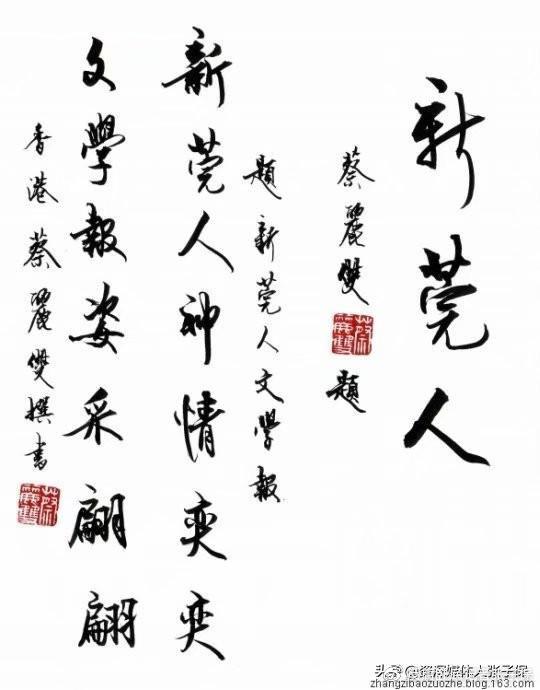 新莞人
蔡麗雙
蔡麗雙
題
題新莞人文學報
新莞人神情奕奕
文學報姿采翩翩
香港蔡麗雙撰書
蔡麗雙
头条@资深媒体人张子保
zhangzibaozuozhe.blog.163.com